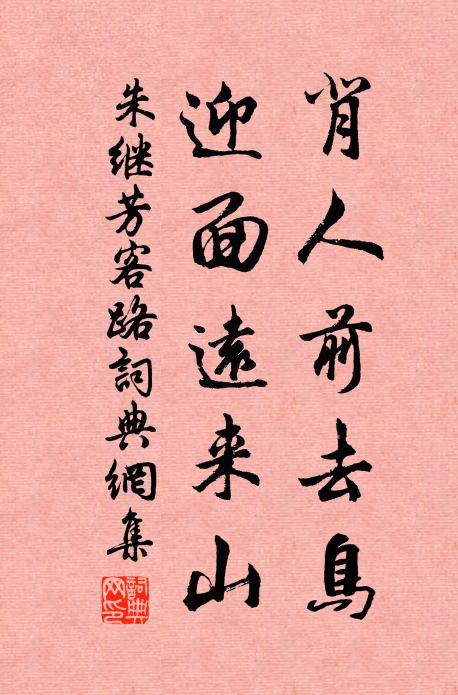 背人前去鳥
迎面遠来山
朱继芳客路詞典網集
詞典网印